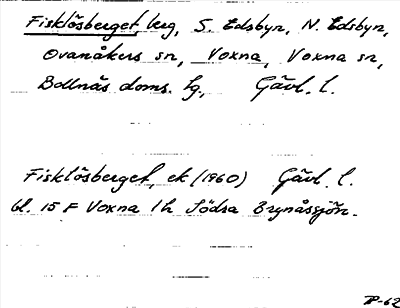 Fisklösberget berg, S. Edsbyn, N. Edsbyn,
Ovanåkers sn, Voxna, Voxna sn,
Bollnäs doms. tg., Gävl. l.
Fisklösberget, ek (1960) Gävl. l.
bl. 15 F Voxna 1 h Södra Brynåssjön.
P-62